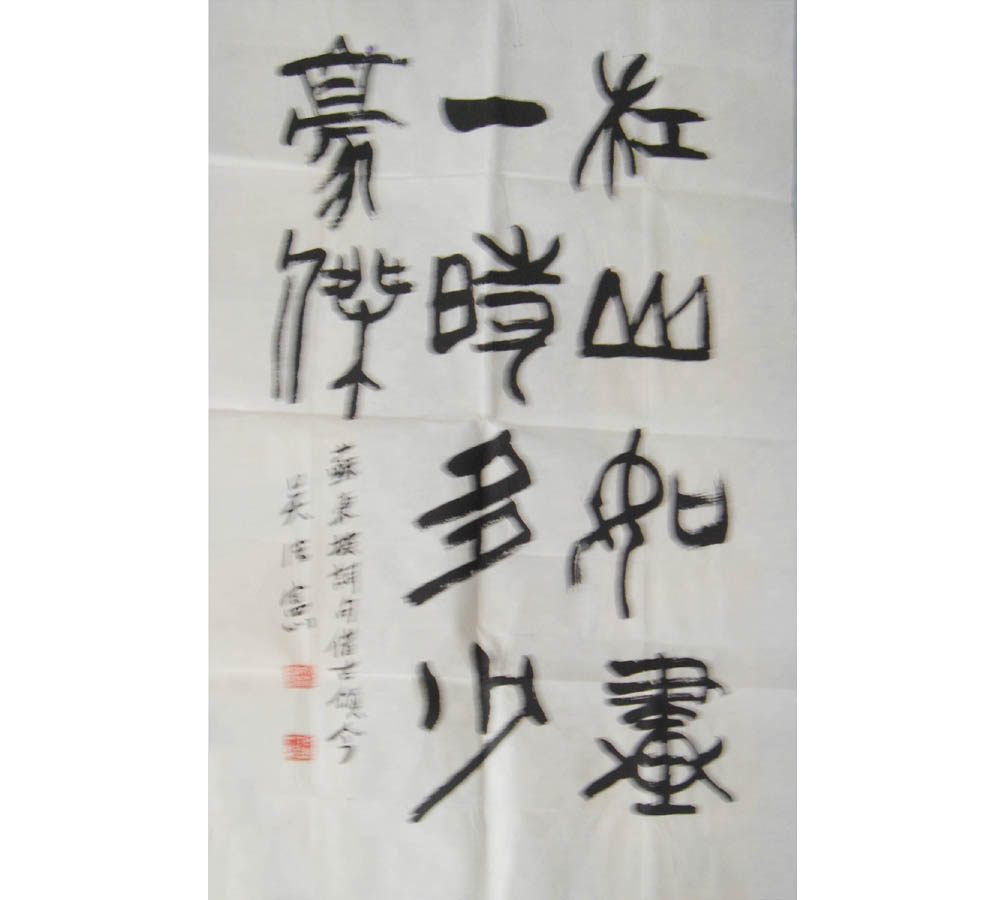 江山如畫
一時多少
豪傑
蘇東坡詞句借古頌今
吴法憲